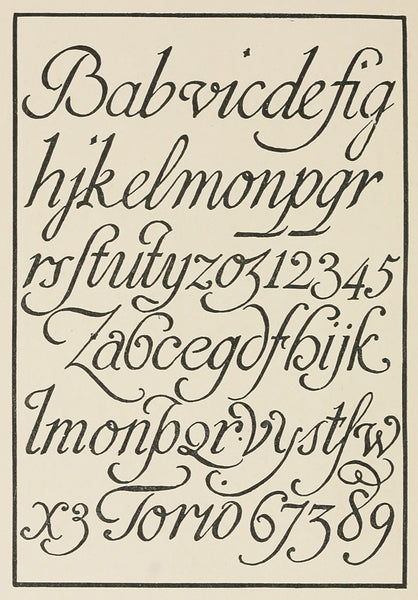 Babvicdefig
hijkelmonpqr
rsſtutyzoʒ12345
Zabcegdfhijk
lmonpqr.vystſw
xʒ Torio 67389